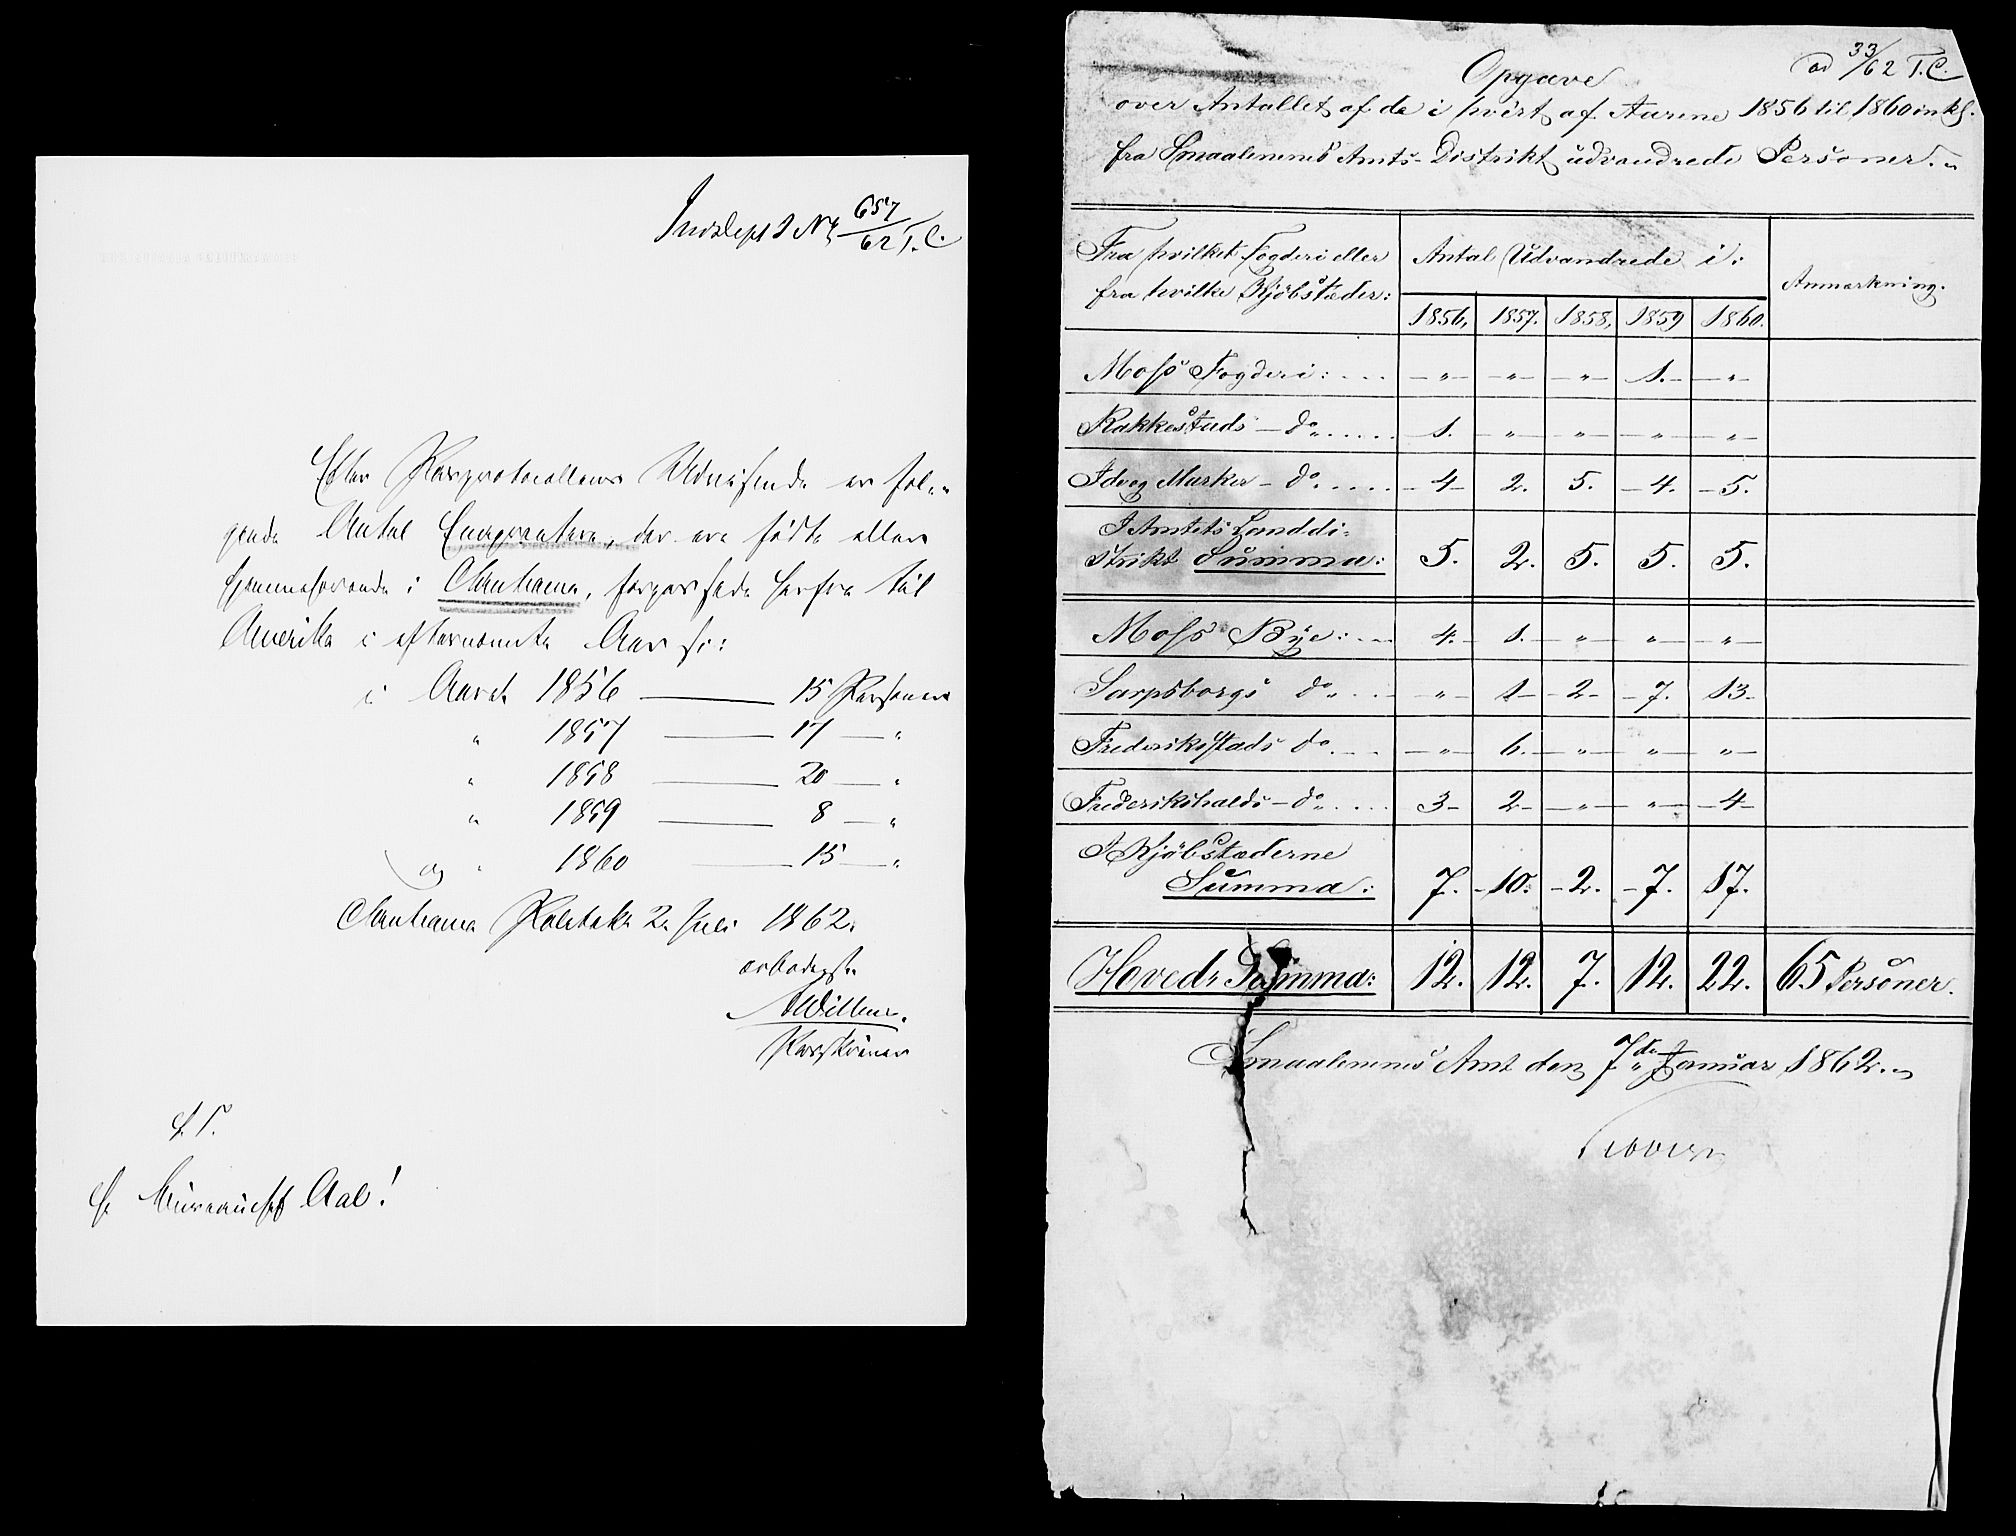 Indslept 9 № 657/62 T.C.
Efter Passprotocollens Udvisende er føl-
gende Antal Emigranter, der ere fødte eller
hjemmehørende i Christiania, herfra til
Amerika i efternævnte Aar
i Aaret 1856 — 15 Personer
" 1857 — 17 — "
" 1858 — 20 — "
" 1859 — 8 — "
og " 1860 — 15 — "
Christiania 2. Juli 1862.
ærbødigst
S. T.
Hr Bureauchef Aal!
ad 33/62 T.C.
Opgave
over Antallet af de i hvert af Aarene 1856 til 1860 inkl.
fra Smaalenenes Amts-Distrikt udvandrede Personer.
Fra hvilket Fogderi eller
fra hvilke Kjöbstæder: Antal Udvandrede i: Anmærkning.
1856, 1857. 1858, 1859 1860.
Moss Fogderi: — " — — " — — " — 1. — " —
Rakkestads — do 1. — " — — " — — " — — " —
Id og Marker — do 4 2. 5. 4. 5.
I Amtets Landdi-
strikt Summa: 5. 2. 5. 5. 5.
Moss Bye: 4. 1. " " "
Sarpsborgs do " 1 2 7. 13
Frederiksstads do " 6. " " "
Frederikshalds — do 3 2 " " 4
I Kjöbstæderne
Summa: 7. 10. 2. 7. 17.
Hoved-Summa: 12. 12. 7. 12. 22. 65 Personer.
Smaalenenes Amt den 7de Januar 1862.